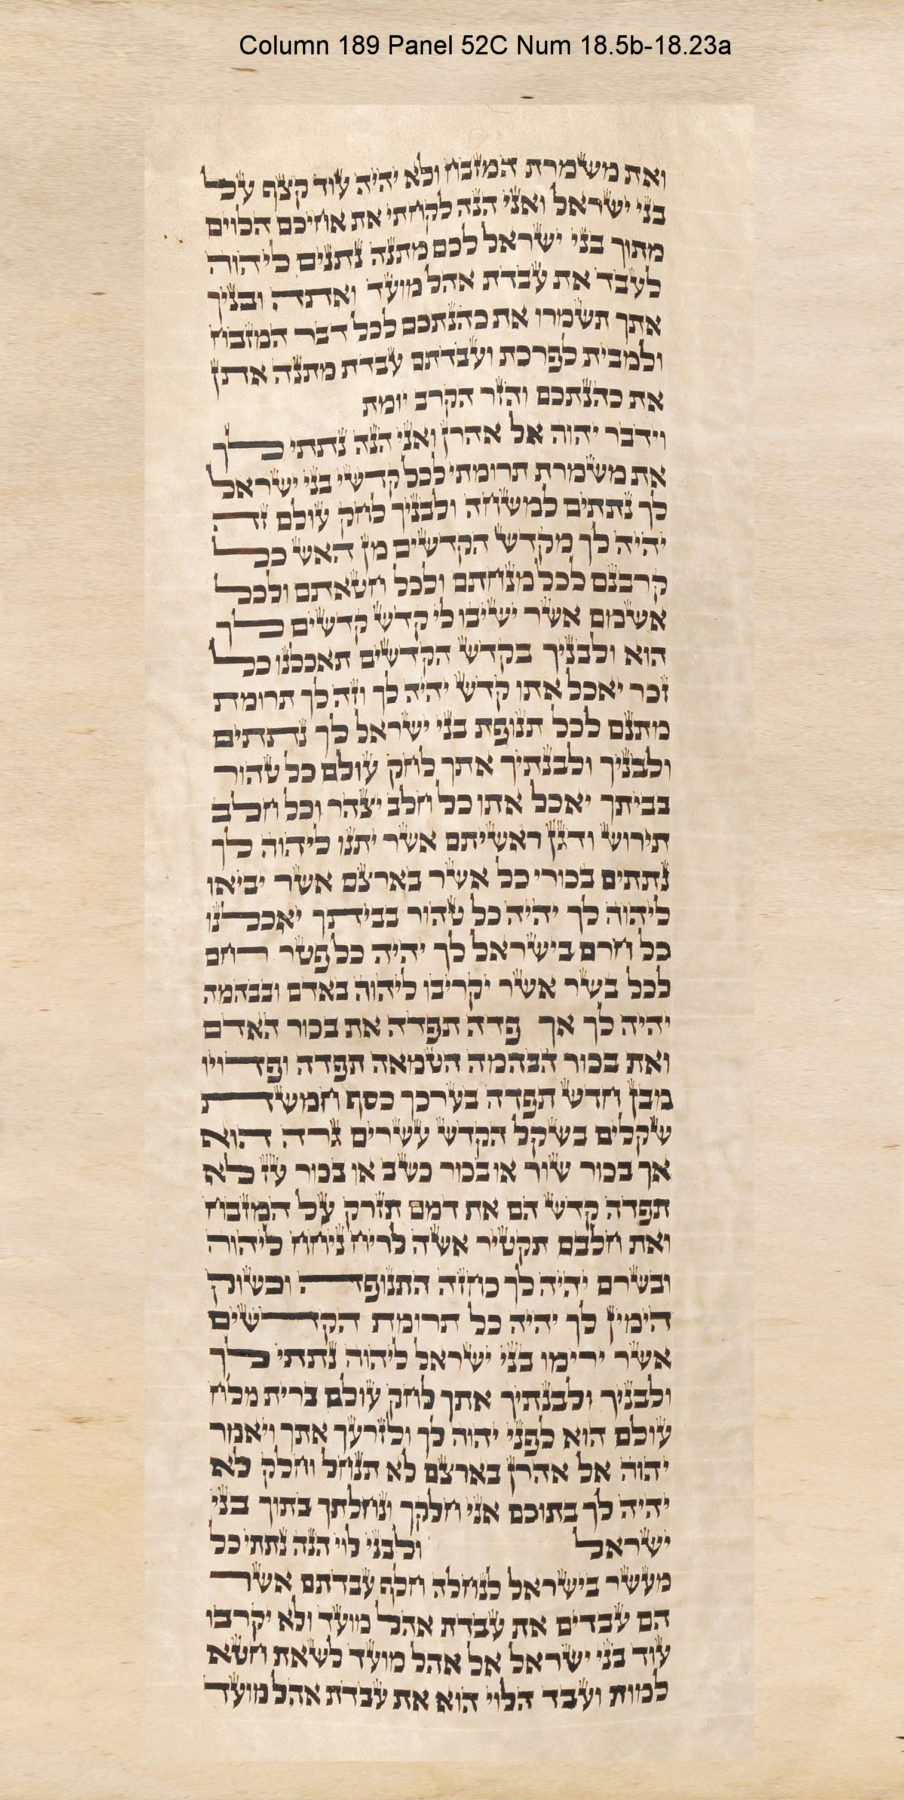 Column 189 Panel 52C Num 18.5b-18.23a
ואת משמרת המזבח ולא יהיה עוד קצף על
בני ישראל ואני הנה לקחתי את אחיכם הלוים
מתוך בני ישראל לכם מתנה נתנים ליהוה
לעבד את עבדת אהל מועד ואתה ובניך
אתך תשמרו את כהנתכם לכל דבר המזבח
ולמבית לפרכת ועבדתם עבדת מתנה אתן
את כהנתכם והזר הקרב יומת
וידבר יהוה אל אהרן ואני הנה נתתי לך
את משמרת תרומתי לכל קדשי בני ישראל
לך נתתים למשחה ולבניך לחק עולם זה
יהיה לך מקדש הקדשים מן האש כל
קרבנם לכל מנחתם ולכל חטאתם ולכל
אשמם אשר ישיבו לי קדש קדשים לך
הוא ולבניך בקדש הקדשים תאכלנו כל
זכר יאכל אתו קדש יהיה לך וזה לך תרומת
מתנם לכל תנופת בני ישראל לך נתתים
ולבניך ולבנתיך אתך לחק עולם כל טהור
בביתך יאכל אתו כל חלב יצהר וכל חלב
תירוש ודגן ראשיתם אשר יתנו ליהוה לך
נתתים בכורי כל אשר בארצם אשר יביאו
ליהוה לך יהיה כל טהור בביתך יאכלנו
כל חרם בישראל לך יהיה כל פטר רחם
לכל בשר אשר יקריבו ליהוה באדם ובבהמה
יהיה לך אך פדה תפדה את בכור האדם
ואת בכור הבהמה הטמאה תפדה ופדויו
מבן חדש תפדה בערכך כסף חמשת
שקלים בשקל הקדש עשרים גרה הוא
אך בכור שור או בכור כשב או בכור עז לא
תפדה קדש הם את דמם תזרק על המזבח
ואת חלבם תקטיר אשה לריח ניחח ליהוה
ובשרם יהיה לך כחזה התנופה וכשוק
הימין לך יהיה כל תרומת הקדשים
אשר ירימו בני ישראל ליהוה נתתי לך
ולבניך ולבנתיך אתך לחק עולם ברית מלח
עולם הוא לפני יהוה לך ולזרעך אתך ויאמר
יהוה אל אהרן בארצם לא תנחל וחלק לא
יהיה לך בתוכם אני חלקך ונחלתך בתוך בני
ישראל ולבני לוי הנה נתתי כל
מעשר בישראל לנחלה חלף עבדתם אשר
הם עבדים את עבדת אהל מועד ולא יקרבו
עוד בני ישראל אל אהל מועד לשאת חטא
למות ועבד הלוי הוא את עבדת אהל מועד